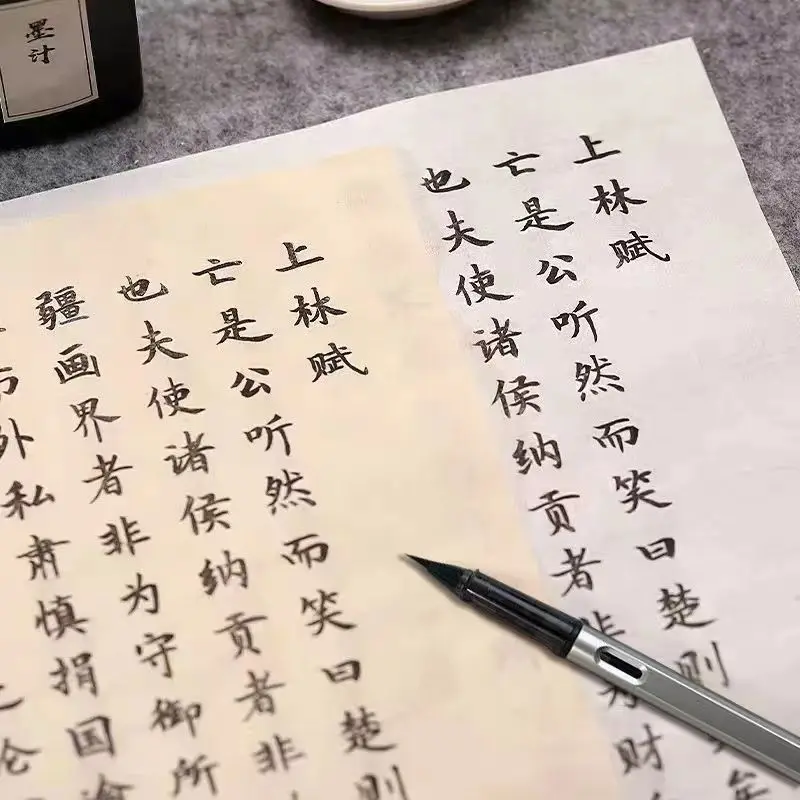 墨汁
上林赋
亡是公听然而笑曰楚则
也夫使诸侯纳贡者非为财
上林赋
亡是公听然而笑曰楚则
也夫使诸侯纳贡者非
疆画界者非为守御所
外私肃慎捐国逾
论